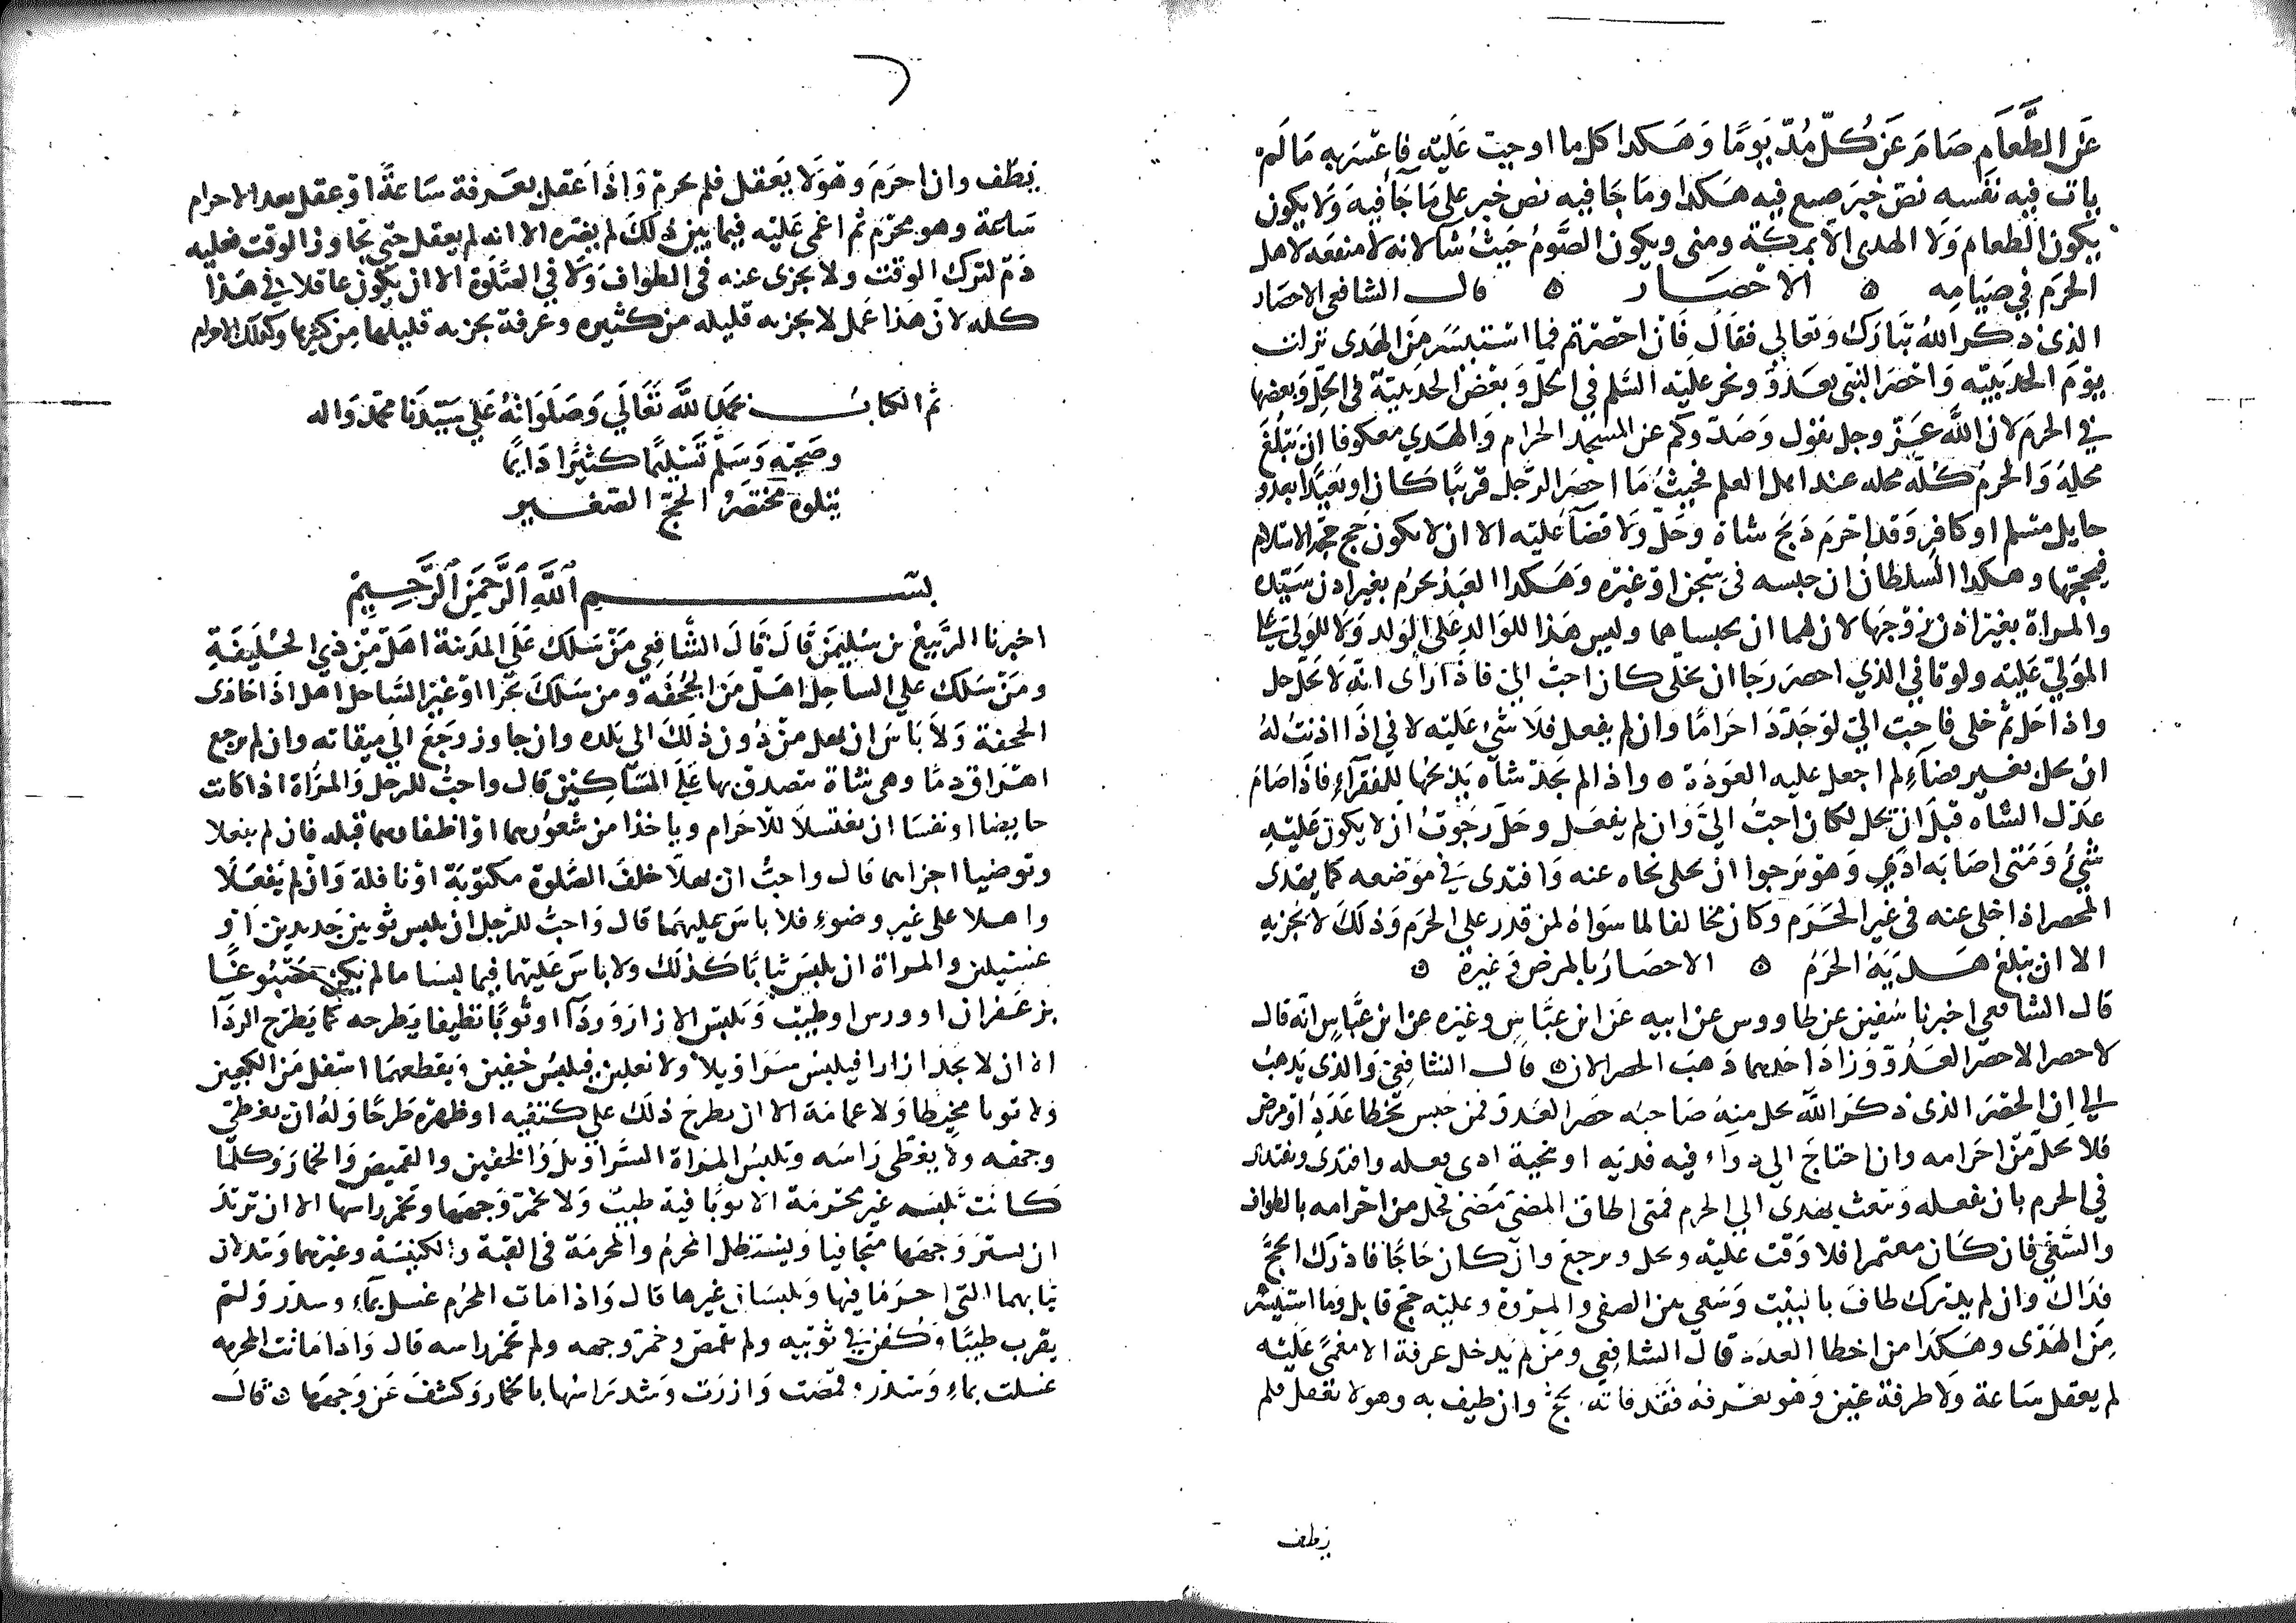 عن الطعام صام عن كل مد يوما وهكذا كل ما اوجبت عليه فاعسر به ما لم
يات فيه نفسه نص خبر صنع فيه هكذا وما جا فيه نص خبر على ما جا فيه ولا يكون
يكون الطعام ولا الهدى الا بمكة ومنى ويكون الصوم حيث شا لانه لا منفعه لاهل
الحرم في صيامه ه الاحصار ه قال الشافعي الاحصار
الذي ذكر الله تبارك وتعالى فقال فان احصرتم فما استيسر من الهدى نزلت
يوم الحديبيه واحصر النبي بعدو ونحر عليه السلم في الحل وبعض الحديبية في الحل وبعضها
في الحرم لان الله عز وجل يقول وصدوكم عن المسجد الحرام والهدي معكوفا ان يبلغ
محله والحرم كله محله عند اهل العلم فحيث ما احصر الرجل قريبا كان او بعيدا بعدو
حايل مسلم او كافر وقد احرم ذبح شاة وحل ولا قضا عليه الا ان لا يكون حج حجة الاسلام
فيحجها وهكذا السلطان ان حبسه في سجن او غيره وهكذا العبد يحرم بغير اذن سيده
والمراة بغير اذن زوجها لان لهما ان يحبساهما وليس هذا للوالد على الولد ولا للولي على
المولي عليه ولو تانى الذي احصر رجا ان يخلى كان احب الي فاذا راى انه لا يخلى حل
واذا حل ثم خلى فاحب الي لو جدد احراما وان لم يفعل فلا شئ عليه لاني اذا اذنت له
ان يحل بغير قضاء لم اجعل عليه العودة ه واذا لم يجد شاه يذبحها للفقراء فاذا صام
عدل الشاه قبل ان يحل لكان احب الي وان لم يفعل وحل رجوت ان لا يكون عليه
شيء ومتى اصابه اذي وهو يرجوا ان يخلى نحاه عنه وافتدى في موضعه كما يفتدى
المحصر اذا خلى عنه في غير الحرم وكان مخالفا لما سواه لمن قدر على الحرم وذلك لا يجزيه
الا ان يبلغ هديه الحرم ه الاحصار بالمرض وغيره ه
قال الشافعي اخبرنا سفين عن طاووس عن ابيه عن ابن عباس وغيره عن ابن عباس انه قال
لا حصر الا حصر العدو وزاد احدهما ذهب الحصر الان ه قال الشافعي والذي يذهب
الي ان الحصر الذي ذكر الله يحل منه صاحبه حصر العدو فمن حبس بخطا عدد او مرض
فلا يحل من احرامه وان احتاج الى دواء فيه فديه او تنحية اذى فعله وافتدى ويفتدى
في الحرم بان يفعله ويبعث بهدى الى الحرم فمتى اطاق المضي مضى فحل من احرامه بالطواف
والسعي فان كان معتمرا فلا وقت عليه ويحل ويرجع وان كان حاجا فادرك الحج
فذاك وان لم يدرك طاف بالبيت وسعى بين الصفى والمروة وعليه حج قابل وما استيسر
من الهدى وهكذا من اخطا العدد قال الشافعي ومن لم يدخل عرفة الا مغمى عليه
لم يعقل ساعة ولا طرفة عين وهو بعرفه فقد فاته الحج وان طيف به وهو لا يعقل فلم
يطف
يطف وان احرم وهو لا يعقل فلم يحرم واذا عقل بعرفة ساعة او عقل بعد الاحرام
ساعة وهو محرم ثم اغمى عليه فيما بين ذلك لم يضره الا انه لم يعقل حتى يجاوز الوقت فعليه
دم لترك الوقت ولا يجزى عنه في الطواف ولا في الصلوة الا ان يكون عاقلا في هذا
كله لان هذا عمل لا يجزيه قليله من كثيره وعرفة يجزيه قليلها من كثيرها وكذلك الاحرام
تم الكتاب بحمد الله تعالى وصلواته على سيدنا محمد واله
وصحبه وسلم تسليما كثيرا دايما
يتلوه مختصر الحج الصغير
بسم الله الرحمن الرحيم
اخبرنا الربيع بن سليمن قال قال الشافعي من سلك على المدينة اهل من ذي الحليفة
ومن سلك على الساحل اهل من الجحفه ومن سلك بحرا او غير الساحل اهل اذا حاذى
الجحفة ولا باس ان يهل من دون ذلك الى بلده وان جاوز رجع الي ميقاته وان لم يرجع
اهراق دما وهي شاة يتصدق بها على المساكين قال واحب للرجل والمراة اذا كانت
حايضا او نفسا ان يغتسلا للاحرام وياخذا من شعورهما او اظفارهما قبله فان لم يفعلا
وتوضيا اجزاهما قال واحب ان يهلا خلف الصلوة مكتوبة او نافلة وان لم يفعلا
واهلا على غير وضوء فلا باس عليهما قال واحب للرجل ان يلبس ثوبين جديدين او
غسيلين والمراة ان يلبس ثيابا كذلك ولا باس عليهما فيما لبسا ما لم يكن مصبوغا
بزعفران او ورس او طيب ويلبس الازار وردآ او ثوبا نظيفا يطرحه كما يطرح الردآ
الا ان لا يجد ازارا فيلبس سراويلا ولا نعلين فيلبس خفين ويقطعهما اسفل من الكعبين
ولا ثوبا مخيطا ولا عمامة الا ان يطرح ذلك على كتفيه او ظهره طرحا وله ان يغطى
وجهه ولا يغطى راسه وتلبس المراة السراويل والخفين والقميص والخمار وكلما
كانت تلبسه غير محرمة الا ثوبا فية طيب ولا تخمر وجهها وتخمر راسها الا ان تريد
ان تستر وجهها متجافيا ويستظل المحرم والمحرمة في القبة والكنيسة وغيرهما ويبدلان
ثيابهما التي احرما فيها ويلبسان غيرها قال واذا مات المحرم غسل بماء وسدر ولم
يقرب طيبا وكفن في ثوبيه ولم يقمص وخمر وجهه ولم تخمر راسه قال واذا ماتت المحرمه
غسلت بماء وسدر وقمصت وازرت وشد راسها بالخمار وكشف عن وجهها ه قال